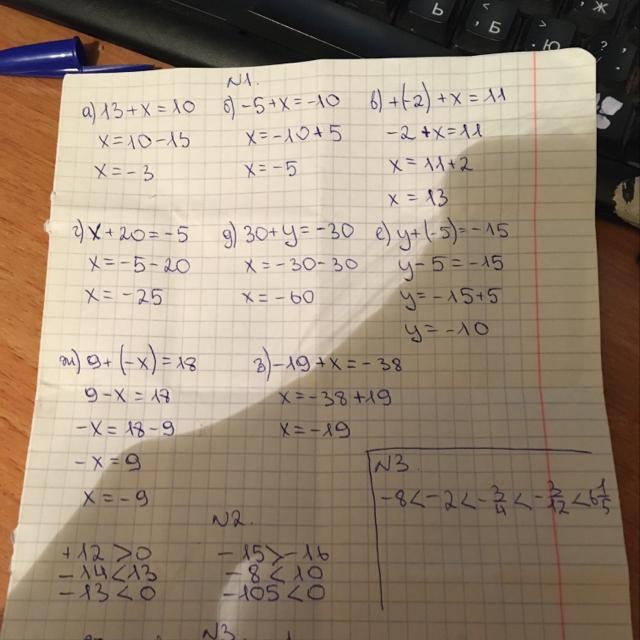 N1.
а) 13 + x = 10
x = 10 - 15
x = - 3
б) -5 + x = -10
x = -10 + 5
x = -5
в) +(-2) + x = 11
-2 + x = 11
x = 11 + 2
x = 13
г) x + 20 = -5
x = -5 - 20
x = -25
д) 30 + y = -30
x = -30 - 30
x = -60
е) y + (-5) = -15
y - 5 = -15
y = -15 + 5
y = -10
ж) 9 + (-x) = 18
9 - x = 18
-x = 18 - 9
-x = 9
x = -9
з) -19 + x = -38
x = -38 + 19
x = -19
N2.
+12 > 0
-14 < 13
-13 < 0
-15 > -16
-8 < 10
-105 < 0
N3.
-8 < -2 < -3/4 < -3/12 < 6 1/5
N3.
Ь
Б
Ю
Ж